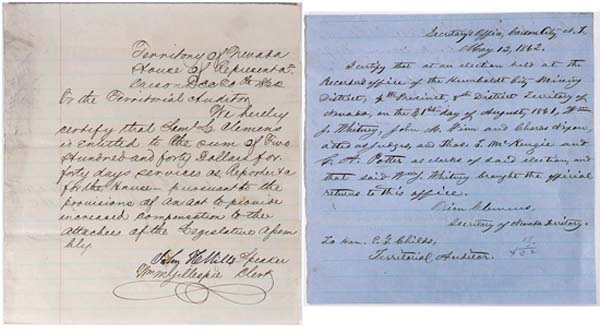 Territory of Nevada
House of Representa
Carson Dec 20th 1862
To the Territorial Auditor
We hereby
certify that Saml. L. Clemens
is entitled to the sum of Two
Hundred and forty Dollars for
forty days services as Reporter
for the House - pursuant to the
provisions of an act to provide
increased compensation to the
attachees of the Legislative Assem
bly.
John H. Mills Speaker
Wm M Gillespie Clerk
Secretary's Office, Carson City N. T.
May 12, 1862.
I certify that at an election held at the
Recorder's office of the Humboldt City Mining
District, Precinct, 8th District Territory of
Nevada, on the 31st day of August, 1861, Wm
J. Whitney, John H. and Charles Nixon,
acted as judges, and Thos. L. McKenzie and
Potter as clerks of said election, and
that said Wm J. Whitney brought the official
returns to this office.
Orion Clemens,
Secretary of Nevada Territory.
To Hon. Childs,
Territorial Auditor.